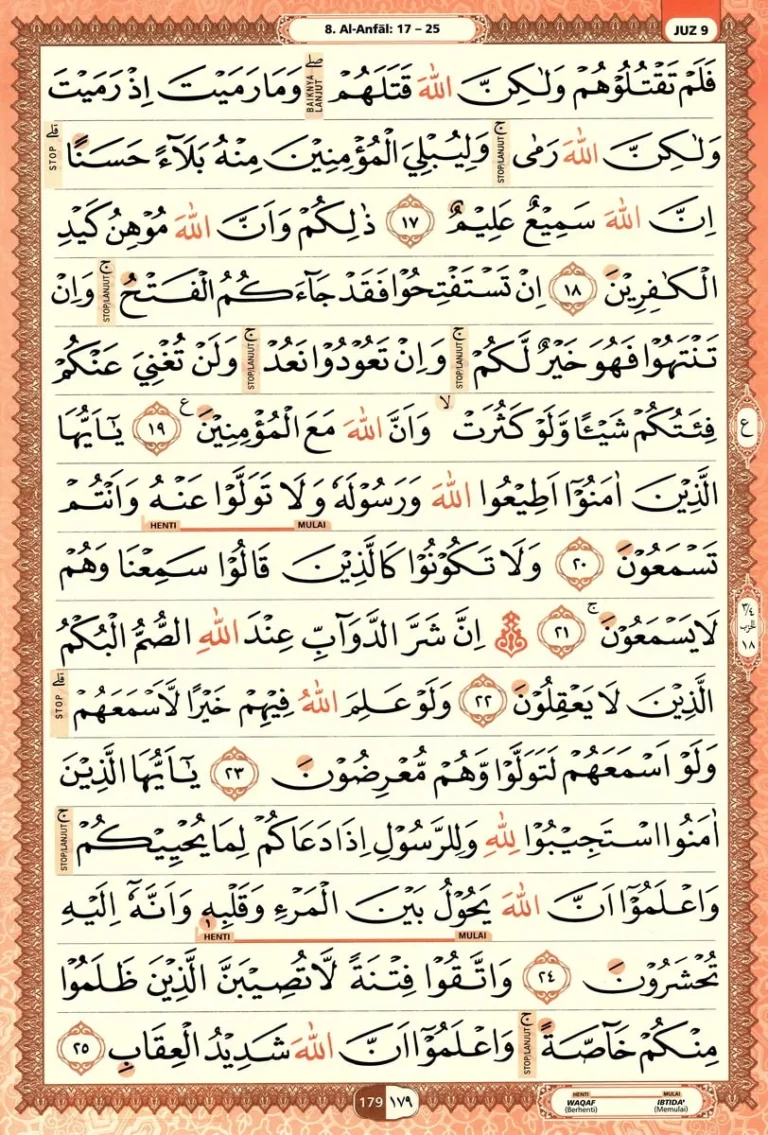 8. Al-Anfāl: 17 – 25
JUZ 9
فَلَمْ تَقْتُلُوْهُمْ وَلٰكِنَّ اللّٰهَ قَتَلَهُمْ ۖ وَمَا رَمَيْتَ اِذْ رَمَيْتَ
BAIKNYA LANJUT
وَلٰكِنَّ اللّٰهَ رَمٰى ۚ وَلِيُبْلِيَ الْمُؤْمِنِيْنَ مِنْهُ بَلَاۤءً حَسَنًا ۗ
STOP/LANJUT
STOP
اِنَّ اللّٰهَ سَمِيْعٌ عَلِيْمٌ ١٧ ذٰلِكُمْ وَاَنَّ اللّٰهَ مُوْهِنُ كَيْدِ
الْكٰفِرِيْنَ ١٨ اِنْ تَسْتَفْتِحُوْا فَقَدْ جَاۤءَكُمُ الْفَتْحُ ۚ وَاِنْ
STOP/LANJUT
تَنْتَهُوْا فَهُوَ خَيْرٌ لَّكُمْ ۚ وَاِنْ تَعُوْدُوْا نَعُدْ ۚ وَلَنْ تُغْنِيَ عَنْكُمْ
STOP/LANJUT
STOP/LANJUT
فِئَتُكُمْ شَيْـًٔا وَّلَوْ كَثُرَتْ ۙ وَاَنَّ اللّٰهَ مَعَ الْمُؤْمِنِيْنَ ࣖ ١٩ يٰٓاَيُّهَا
ع
الَّذِيْنَ اٰمَنُوْٓا اَطِيْعُوا اللّٰهَ وَرَسُوْلَهٗ وَلَا تَوَلَّوْا عَنْهُ وَاَنْتُمْ
MULAI
HENTI
تَسْمَعُوْنَ ٢٠ وَلَا تَكُوْنُوْا كَالَّذِيْنَ قَالُوْا سَمِعْنَا وَهُمْ
لَا يَسْمَعُوْنَ ۚ ٢١ ۞ اِنَّ شَرَّ الدَّوَاۤبِّ عِنْدَ اللّٰهِ الصُّمُّ الْبُكْمُ
٣/٤
الحزب
١٨
الَّذِيْنَ لَا يَعْقِلُوْنَ ٢٢ وَلَوْ عَلِمَ اللّٰهُ فِيْهِمْ خَيْرًا لَّاَسْمَعَهُمْ ۗ
STOP
وَلَوْ اَسْمَعَهُمْ لَتَوَلَّوْا وَّهُمْ مُّعْرِضُوْنَ ٢٣ يٰٓاَيُّهَا الَّذِيْنَ
اٰمَنُوا اسْتَجِيْبُوْا لِلّٰهِ وَلِلرَّسُوْلِ اِذَا دَعَاكُمْ لِمَا يُحْيِيْكُمْ ۚ
STOP/LANJUT
وَاعْلَمُوْٓا اَنَّ اللّٰهَ يَحُوْلُ بَيْنَ الْمَرْءِ وَقَلْبِهٖ وَاَنَّهٗٓ اِلَيْهِ
MULAI
HENTI
تُحْشَرُوْنَ ٢٤ وَاتَّقُوْا فِتْنَةً لَّا تُصِيْبَنَّ الَّذِيْنَ ظَلَمُوْا
مِنْكُمْ خَاۤصَّةً ۚ وَاعْلَمُوْٓا اَنَّ اللّٰهَ شَدِيْدُ الْعِقَابِ ٢٥
STOP/LANJUT
179 ١٧٩
HENTI MULAI
WAQAF IBTIDA'
(Berhenti) (Memulai)